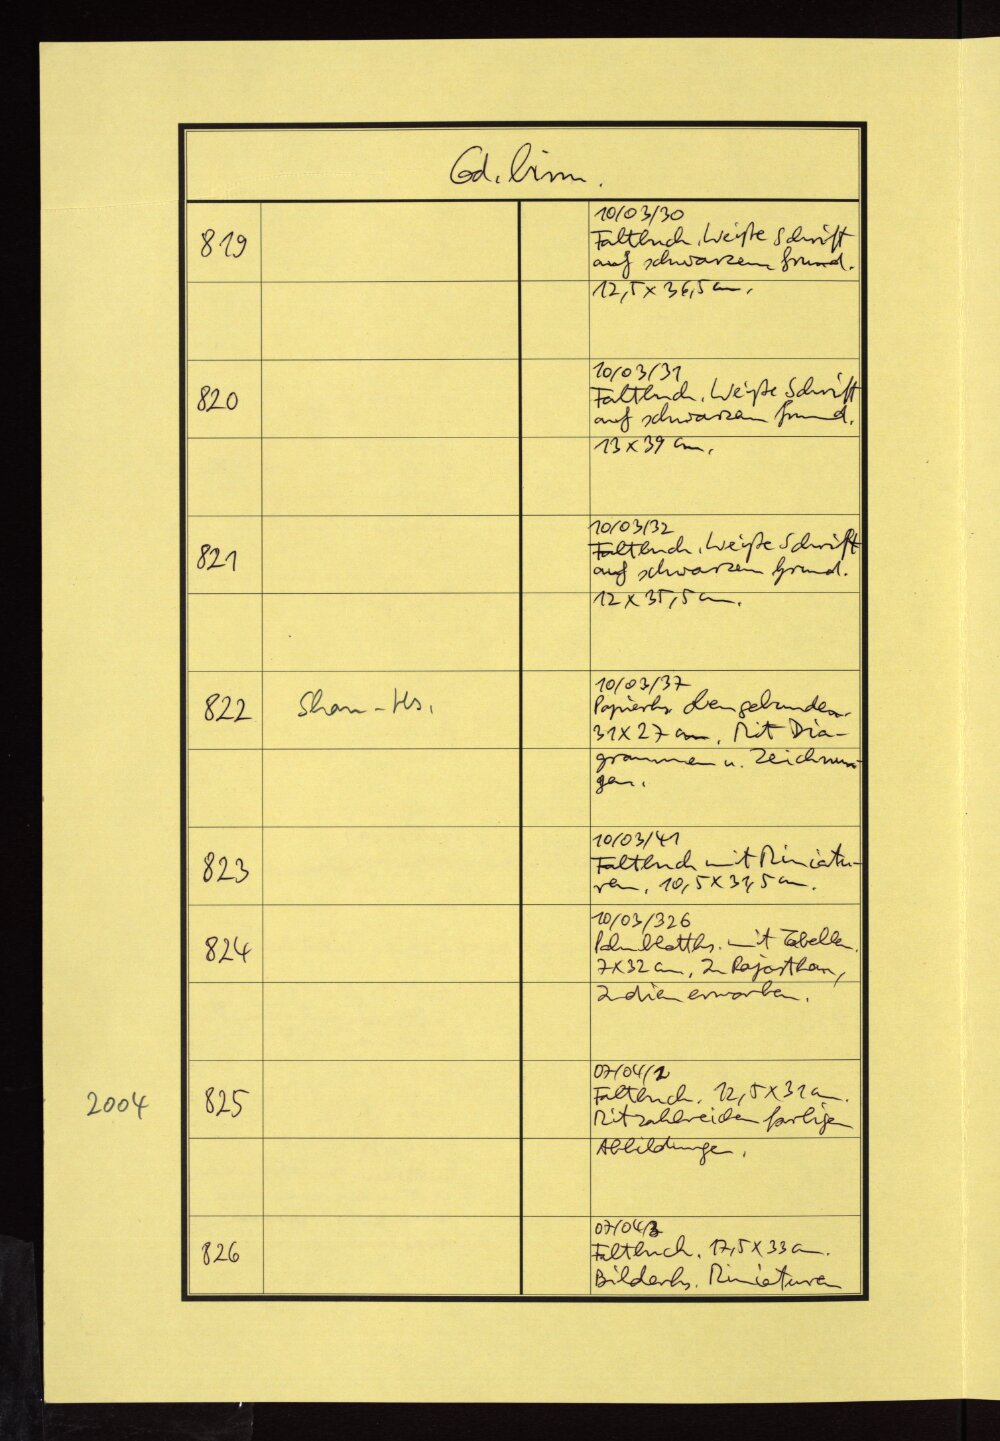 Cod. birm.
819
10/03/30
Faltbuch. Weiße Schrift
auf schwarzem Grund.
12,5 x 36,5 cm.
820
10/03/31
Faltbuch. Weiße Schrift
auf schwarzem Grund.
13 x 39 cm.
821
10/03/32
Faltbuch. Weiße Schrift
auf schwarzem Grund.
12 x 35,5 cm.
822
Shan-Hs.
10/03/37
Papierhs. oben gebunden.
31 x 27 cm. Mit Dia-
grammen u. Zeichnun-
gen.
823
10/03/41
Faltbuch mit Miniatu-
ren. 10,5 x 31,5 cm.
824
10/03/326
Palmblatths. mit Tabellen.
7 x 32 cm. In Rajasthan,
Indien erworben.
2004
825
07/04/2
Faltbuch. 12,5 x 31 cm.
Mit zahlreichen farbigen
Abbildungen.
826
07/04/3
Faltbuch. 17,5 x 33 cm.
Bilderhs. Miniaturen